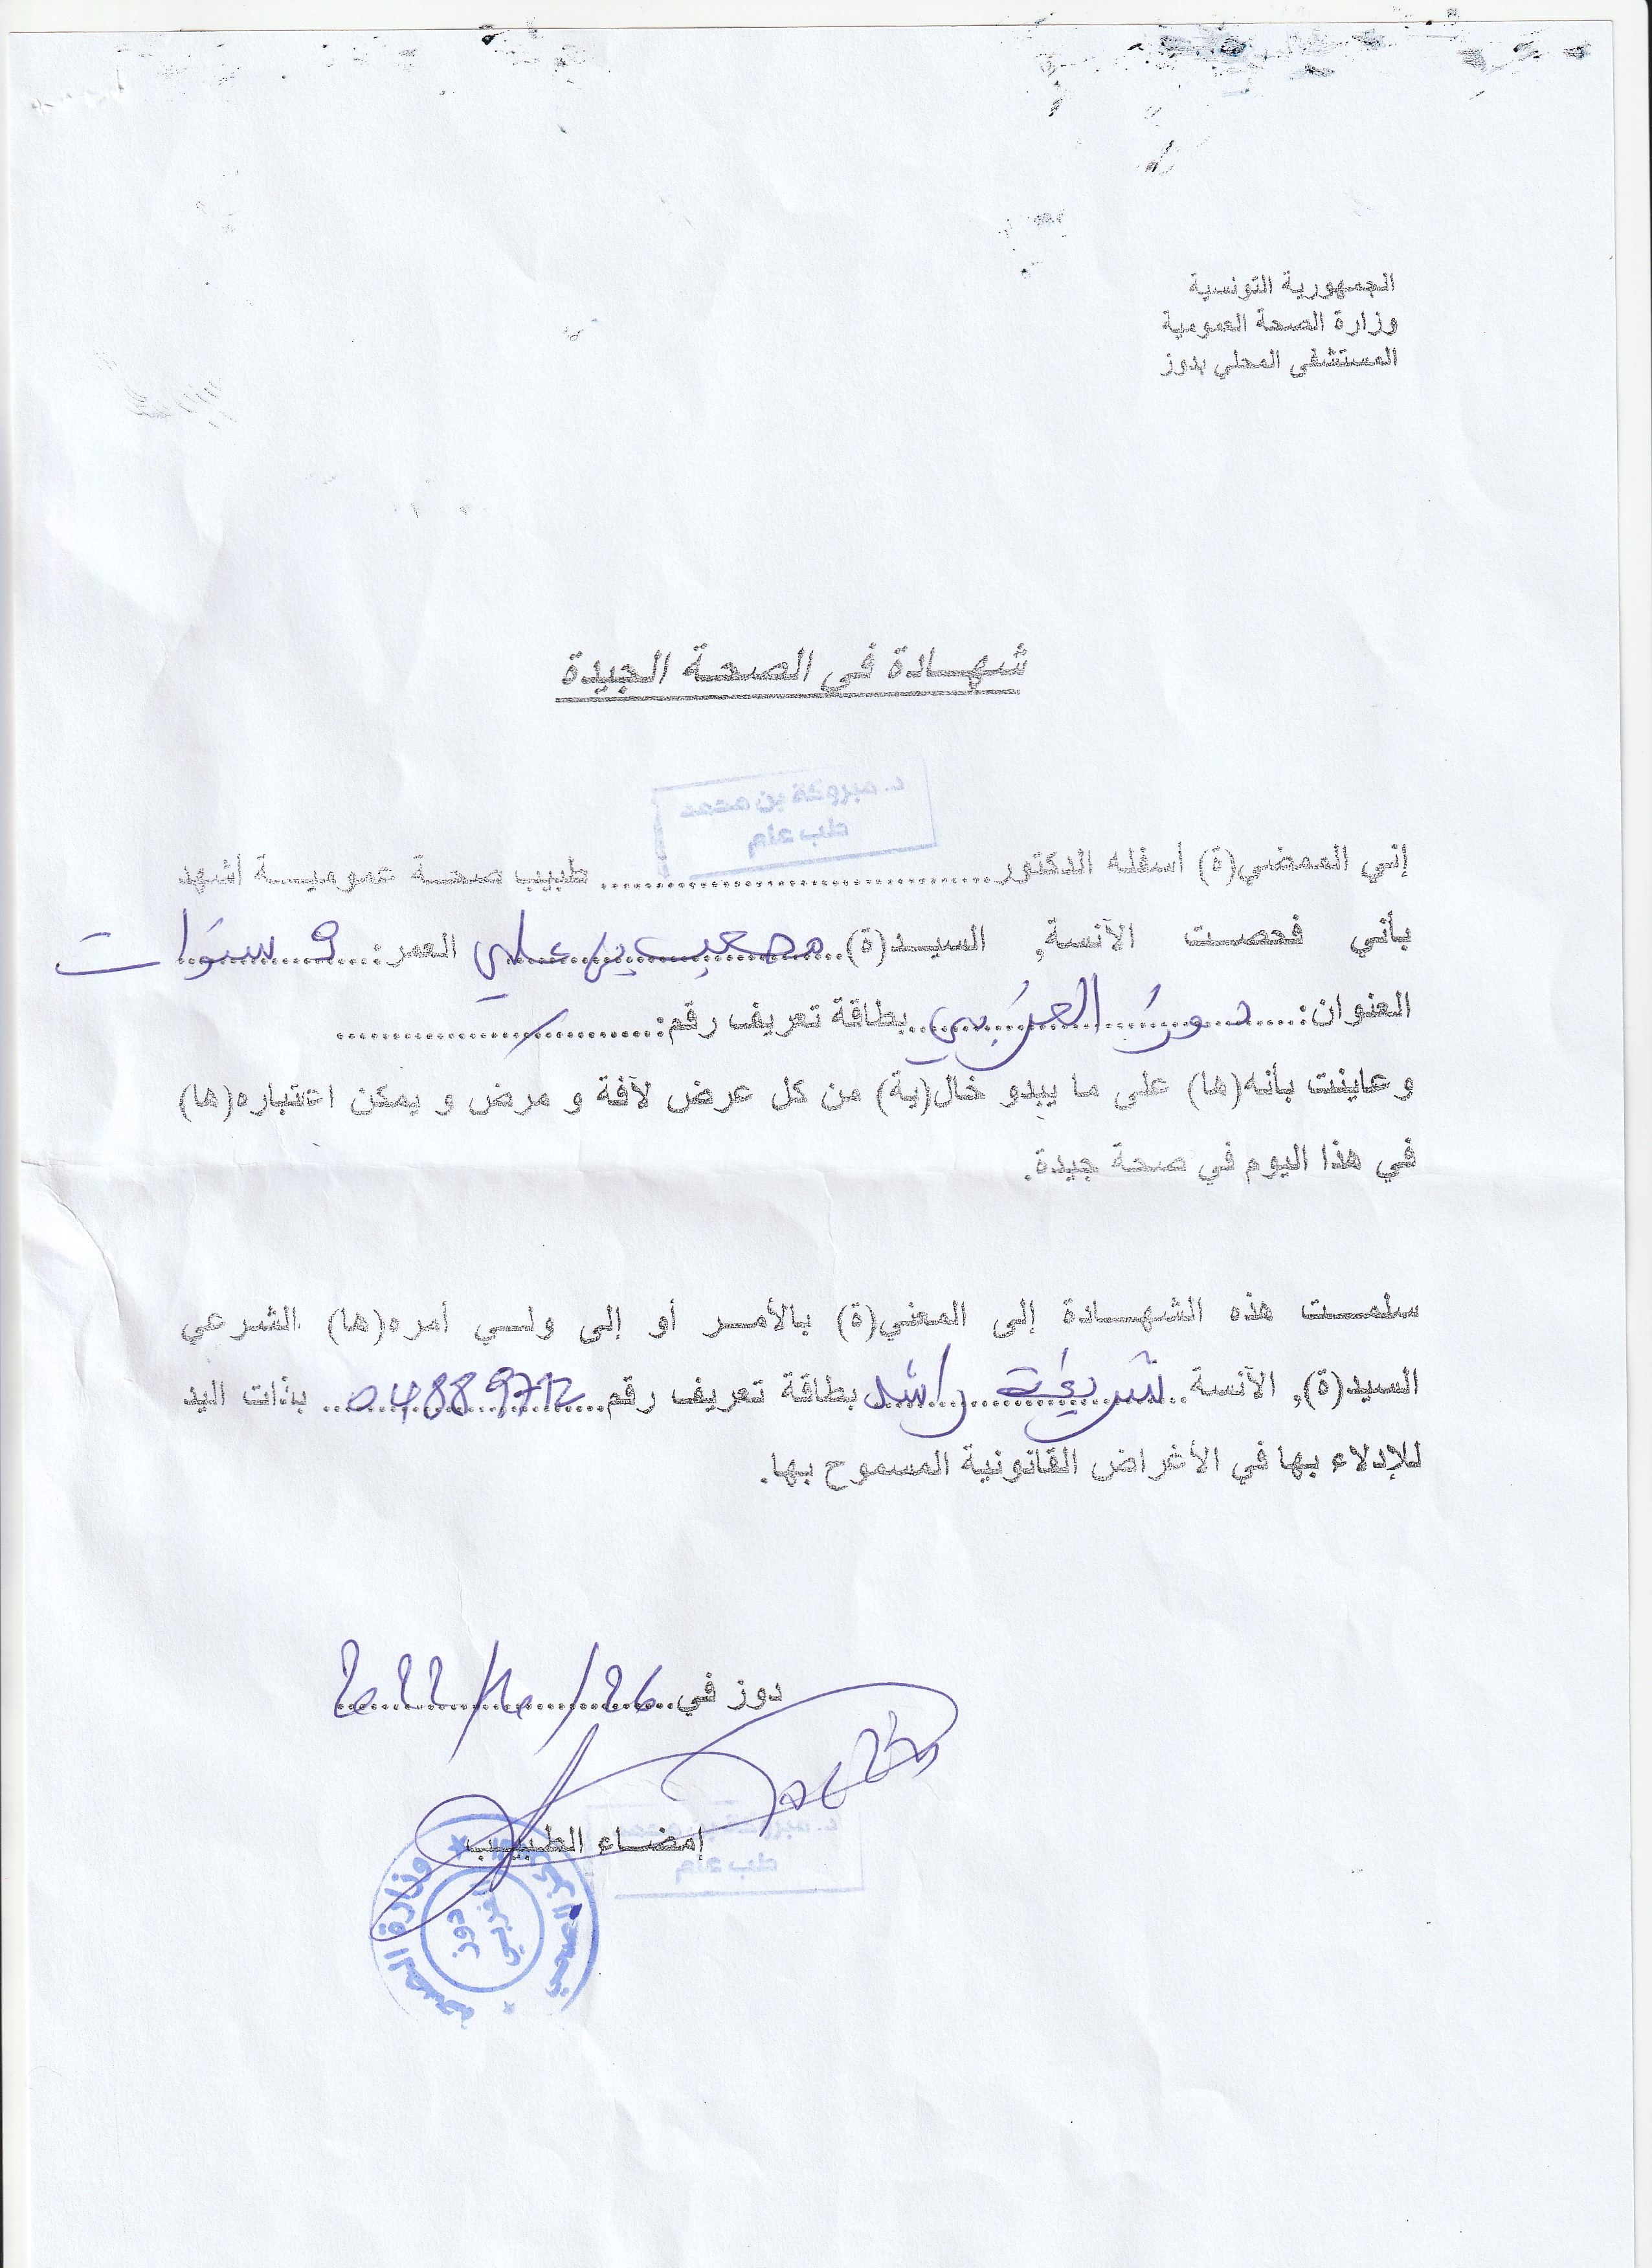 الجمهورية التونسية
وزارة الصحة العمومية
المستشفى المحلي بدوز
شهادة في الصحة الجيدة
د. مبروكة بن محمد
طب عام
إني الممضي(ة) أسفله الدكتور.......................................... طبيب صحة عمومية أشهد
بأني فحصت الآنسة, السيد(ة)..مصعب بن علي العمر: 9 سنوات
العنوان:.....دوز الغربي..بطاقة تعريف رقم:....../..........
و عاينت بأنه(ها) على ما يبدو خال(ية) من كل عرض لآفة و مرض و يمكن اعتباره(ها)
في هذا اليوم في صحة جيدة.
سلمت هذه الشهادة إلى المعني(ة) بالأمر أو إلى ولي أمره(ها) الشرعي
السيد(ة), الآنسة .. راشد بطاقة تعريف رقم...04889712.. بذات اليد
للإدلاء بها في الأغراض القانونية المسموح بها.
دوز في..26/10/2022
إمضاء الطبيب
د. مبروكة بن محمد
طب عام
وزارة الصحة
دوز الغربي